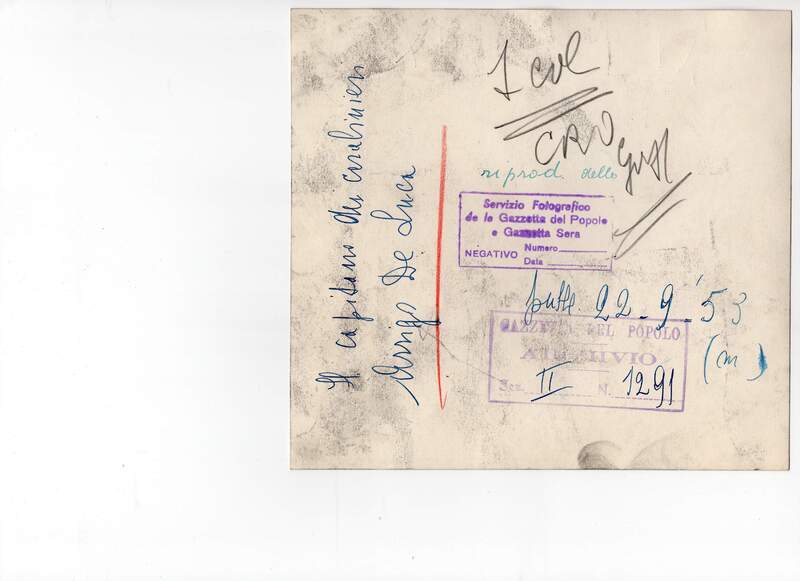 Il capitano dei carabinieri
Arrigo De Luca
1 col
riprod. dello
Servizio Fotografico
de la Gazzetta del Popolo
e Gazzetta Sera
NEGATIVO
Numero
Data
22-9-'53
(m)
GAZZETTA DEL POPOLO
ARCHIVIO
Sez. II N. 1291